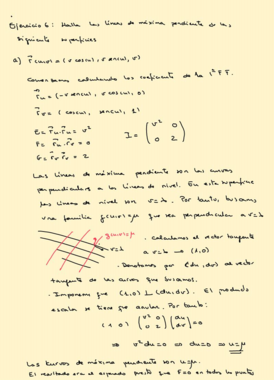 Ejercicio 6: Halla las líneas de máxima pendiente de las
siguiente superficies
a) r⃗(u,v) = (v cos(u), v sen(u), v)
Comenzamos calculando los coeficiente de la 1ª F.F.
r⃗u = (-v sen(u), v cos(u), 0)
r⃗v = (cos(u), sen(u), 1)
E = r⃗u · r⃗u = v²
F = r⃗u · r⃗v = 0
G = r⃗v · r⃗v = 2
I = (v² 0
0 2)
Las líneas de máxima pendiente son las curvas
perpendiculares a las líneas de nivel. En esta superficie
las líneas de nivel son v=λ. Por tanto, buscamos
una familia g(u,v)=μ que sea perpendicular a v=λ
g(u,v)=μ
v=λ
· Calculamos el vector tangente
a v=λ → (1,0)
· Denotamos por (du,dv) al vector
tangente de las curvas que buscamos.
· Imponemos que (1,0) ⊥ (du,dv). El producto
escalar se tiene que anular. Por tanto:
(1 0) (v² 0
0 2) (du
dv) = 0
⇒ v²du=0 ⇔ du=0 ⇔ u=μ
Las curvas de máxima pendiente son u=μ.
El resultado era el esperado puesto que F=0 en todos los puntos